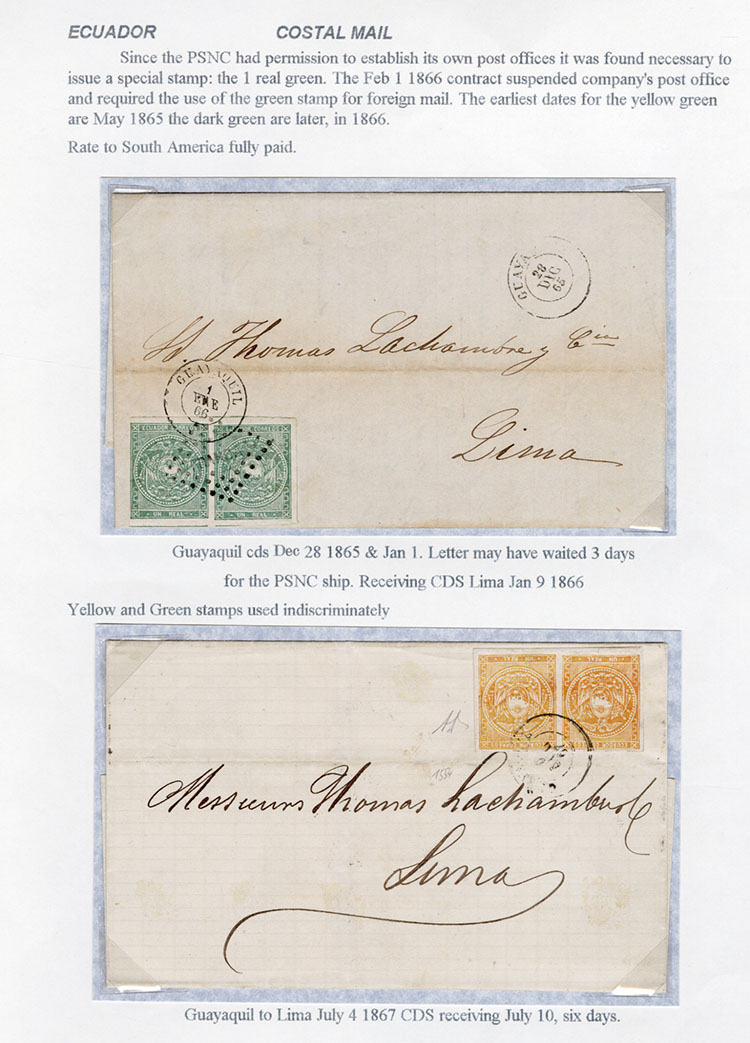 ECUADOR COSTAL MAIL
Since the PSNC had permission to establish its own post offices it was found necessary to
issue a special stamp: the 1 real green. The Feb 1 1866 contract suspended company's post office
and required the use of the green stamp for foreign mail. The earliest dates for the yellow green
are May 1865 the dark green are later, in 1866.
Rate to South America fully paid.
GUAYA
28
DIC
65
Thomas Lachambre y Cia
GUAYAQUIL
1
ENE
66
ECUADOR CORREOS
CORREOS
Lima
UN REAL UN REAL
Guayaquil cds Dec 28 1865 & Jan 1. Letter may have waited 3 days
for the PSNC ship. Receiving CDS Lima Jan 9 1866
Yellow and Green stamps used indiscriminately
UN REAL UN REAL
ECUADOR CORREOS
Messieurs Thomas Lachambre
Lima
Guayaquil to Lima July 4 1867 CDS receiving July 10, six days.